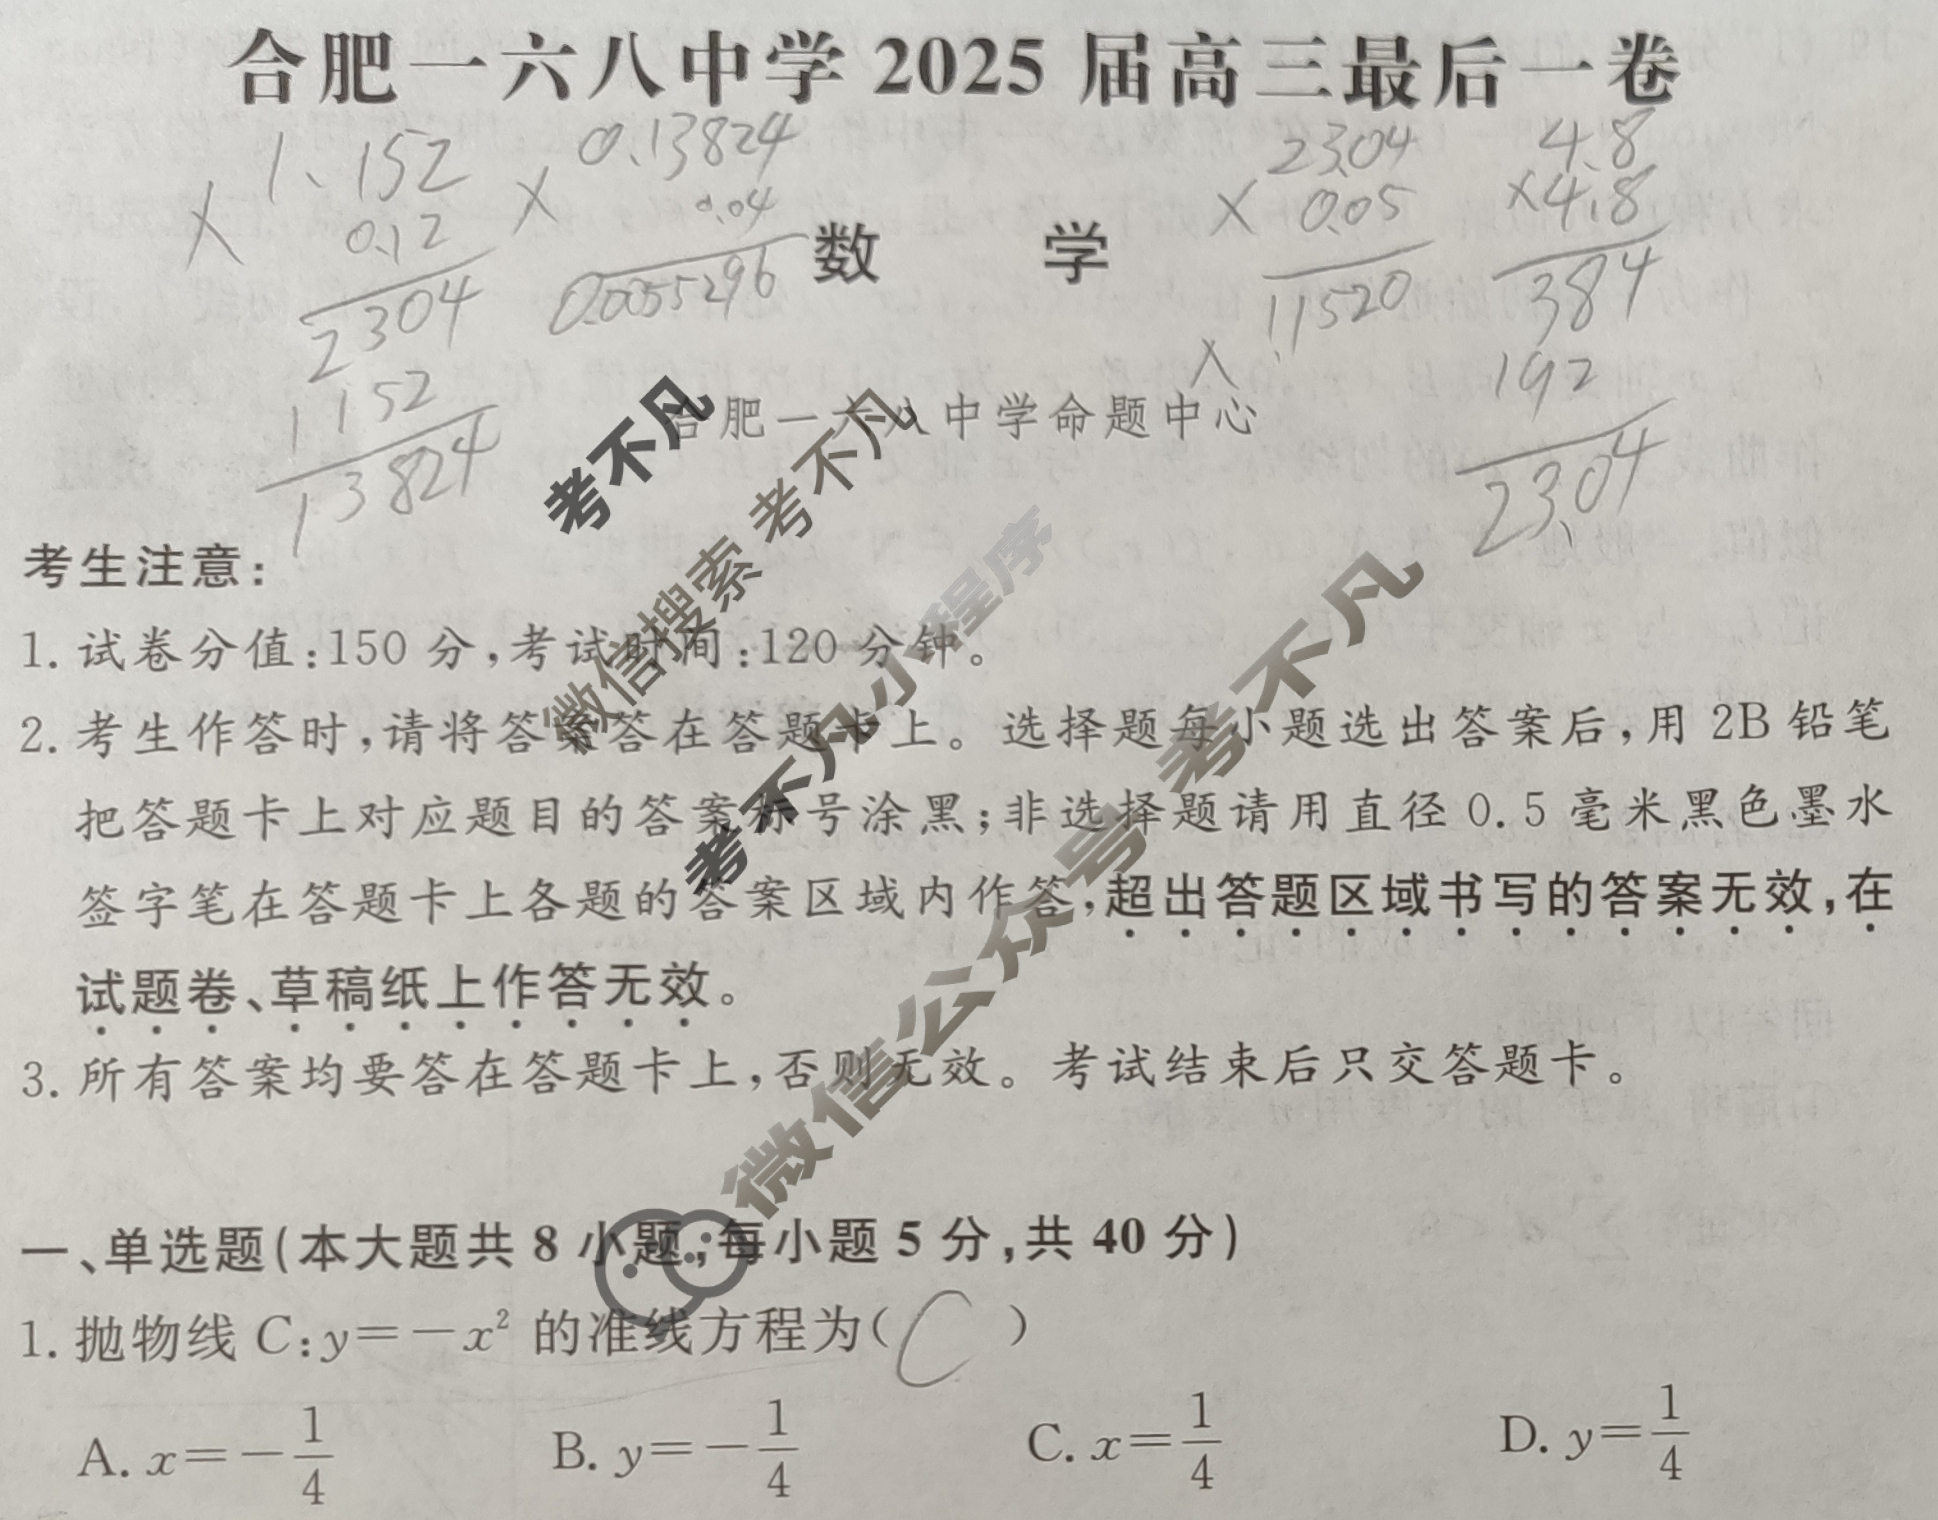 合肥一六八中学 2025 届高三最后一卷
1.152
× 0.12
2304
1152
13824
0.13824
× 0.04
0.0055296
2304
× 0.05
11520
4.8
×4.8
384
192
23.04
数 学
合肥一六八中学命题中心
考不凡
微信搜索 考不凡
考不凡小程序
微信公众号 考不凡
考生注意:
1. 试卷分值:150 分,考试时间:120 分钟。
2. 考生作答时,请将答案答在答题卡上。选择题每小题选出答案后,用 2B 铅笔
把答题卡上对应题目的答案标号涂黑;非选择题请用直径 0.5 毫米黑色墨水
签字笔在答题卡上各题的答案区域内作答,超出答题区域书写的答案无效,在
试题卷、草稿纸上作答无效。
3. 所有答案均要答在答题卡上,否则无效。考试结束后只交答题卡。
一、单选题(本大题共 8 小题,每小题 5 分,共 40 分)
1. 抛物线 C:y=-x² 的准线方程为( C )
A. x=-1/4 B. y=-1/4 C. x=1/4 D. y=1/4